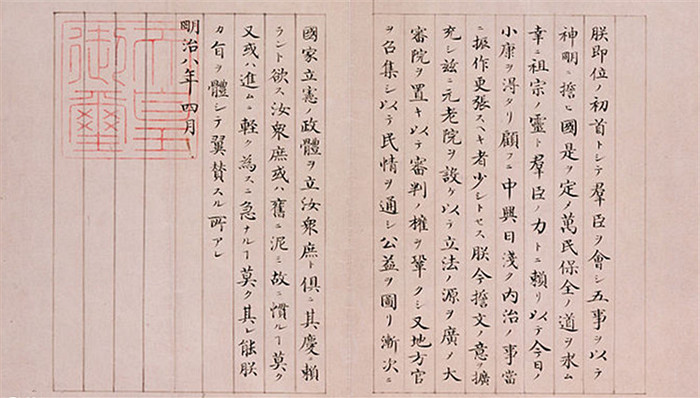 朕即位ノ初首トシテ羣臣ヲ會シ五事ヲ以テ
神明ニ誓ヒ國是ヲ定メ萬民保全ノ道ヲ求ム
幸ニ祖宗ノ靈ト羣臣ノ力トニ賴リ以テ今日ノ
小康ヲ得タリ顧フニ中興日淺ク内治ノ事當
ニ振作更張スヘキ者少シトセス朕今誓文ノ意ヲ擴
充シ茲ニ元老院ヲ設ケ以テ立法ノ源ヲ廣メ大
審院ヲ置キ以テ審判ノ權ヲ鞏クシ又地方官
ヲ召集シ以テ民情ヲ通シ公益ヲ圖リ漸次ニ
國家立憲ノ政體ヲ立汝衆庶ト俱ニ其慶ニ賴
ラント欲ス汝衆庶或ハ舊ニ泥ミ故ニ慣ルヿ莫ク
又或ハ進ムニ軽ク為スニ急ナルヿ莫ク其レ能朕
カ旨ヲ體シテ翼賛スル所アレ
明治八年四月
天皇御璽